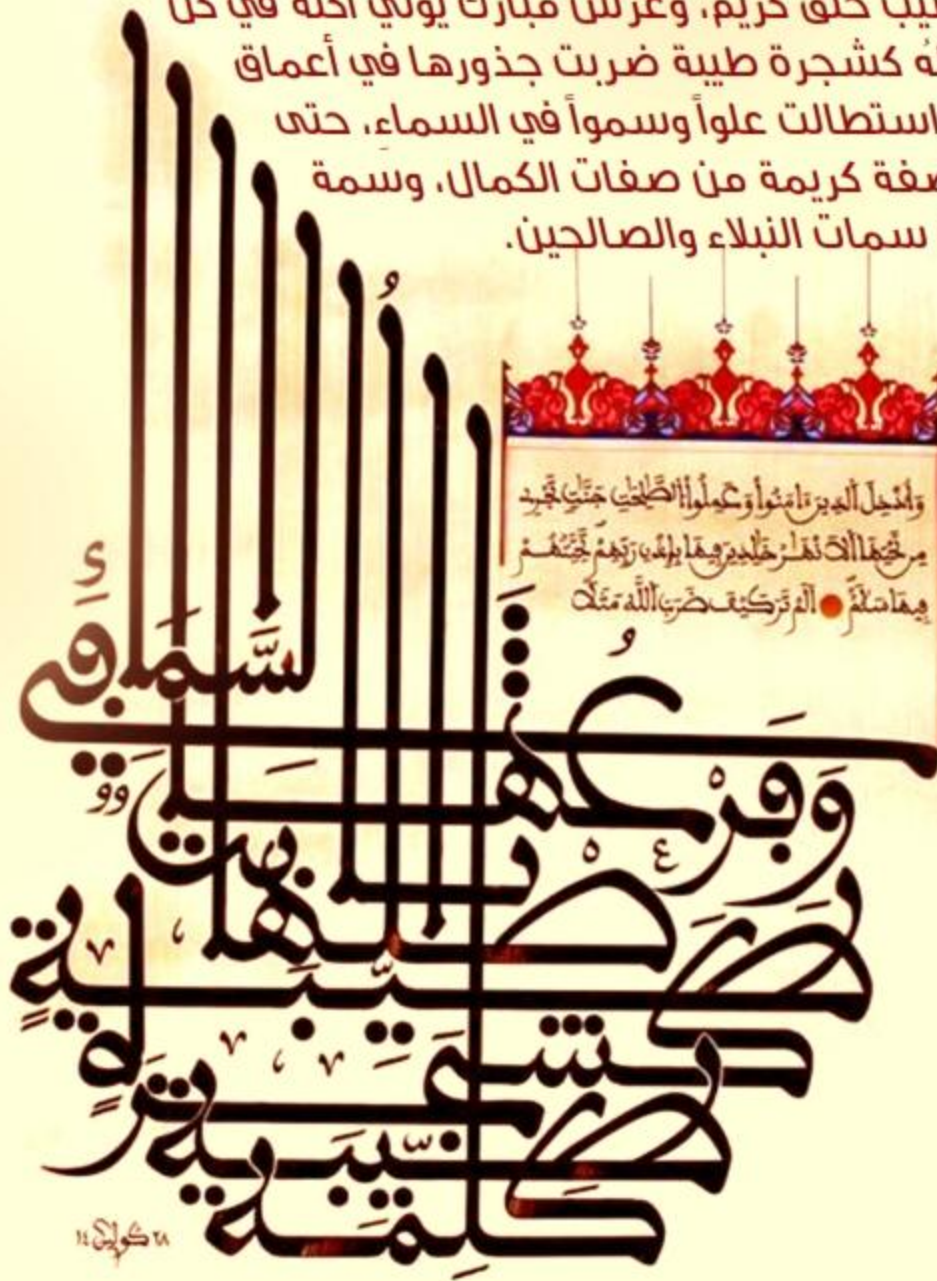 خلق كريم، وغرس مبارك يؤتي أكله في كل
كشجرة طيبة ضربت جذورها في أعماق
استطالت علواً وسمواً في السماء، حتى
صفة كريمة من صفات الكمال، وسمة
سمات النبلاء والصالحين.
وَأُدْخِلَ ٱلَّذِينَ ءَامَنُوا۟ وَعَمِلُوا۟ ٱلصَّٰلِحَٰتِ جَنَّٰتٍ تَجْرِے
مِن تَحْتِهَا ٱلَانْهَٰرُ خَٰلِدِينَ فِيهَا بِإِذْنِ رَبِّهِمْ تَحِيَّتُهُمْ
فِيهَا سَلَٰمٌ ۝ أَلَمْ تَرَ كَيْفَ ضَرَبَ ٱللَّهُ مَثَلًا
كلمة
طيبة
كشجرة
طيبة
أصلها ثابت
وفرعها
في السماء